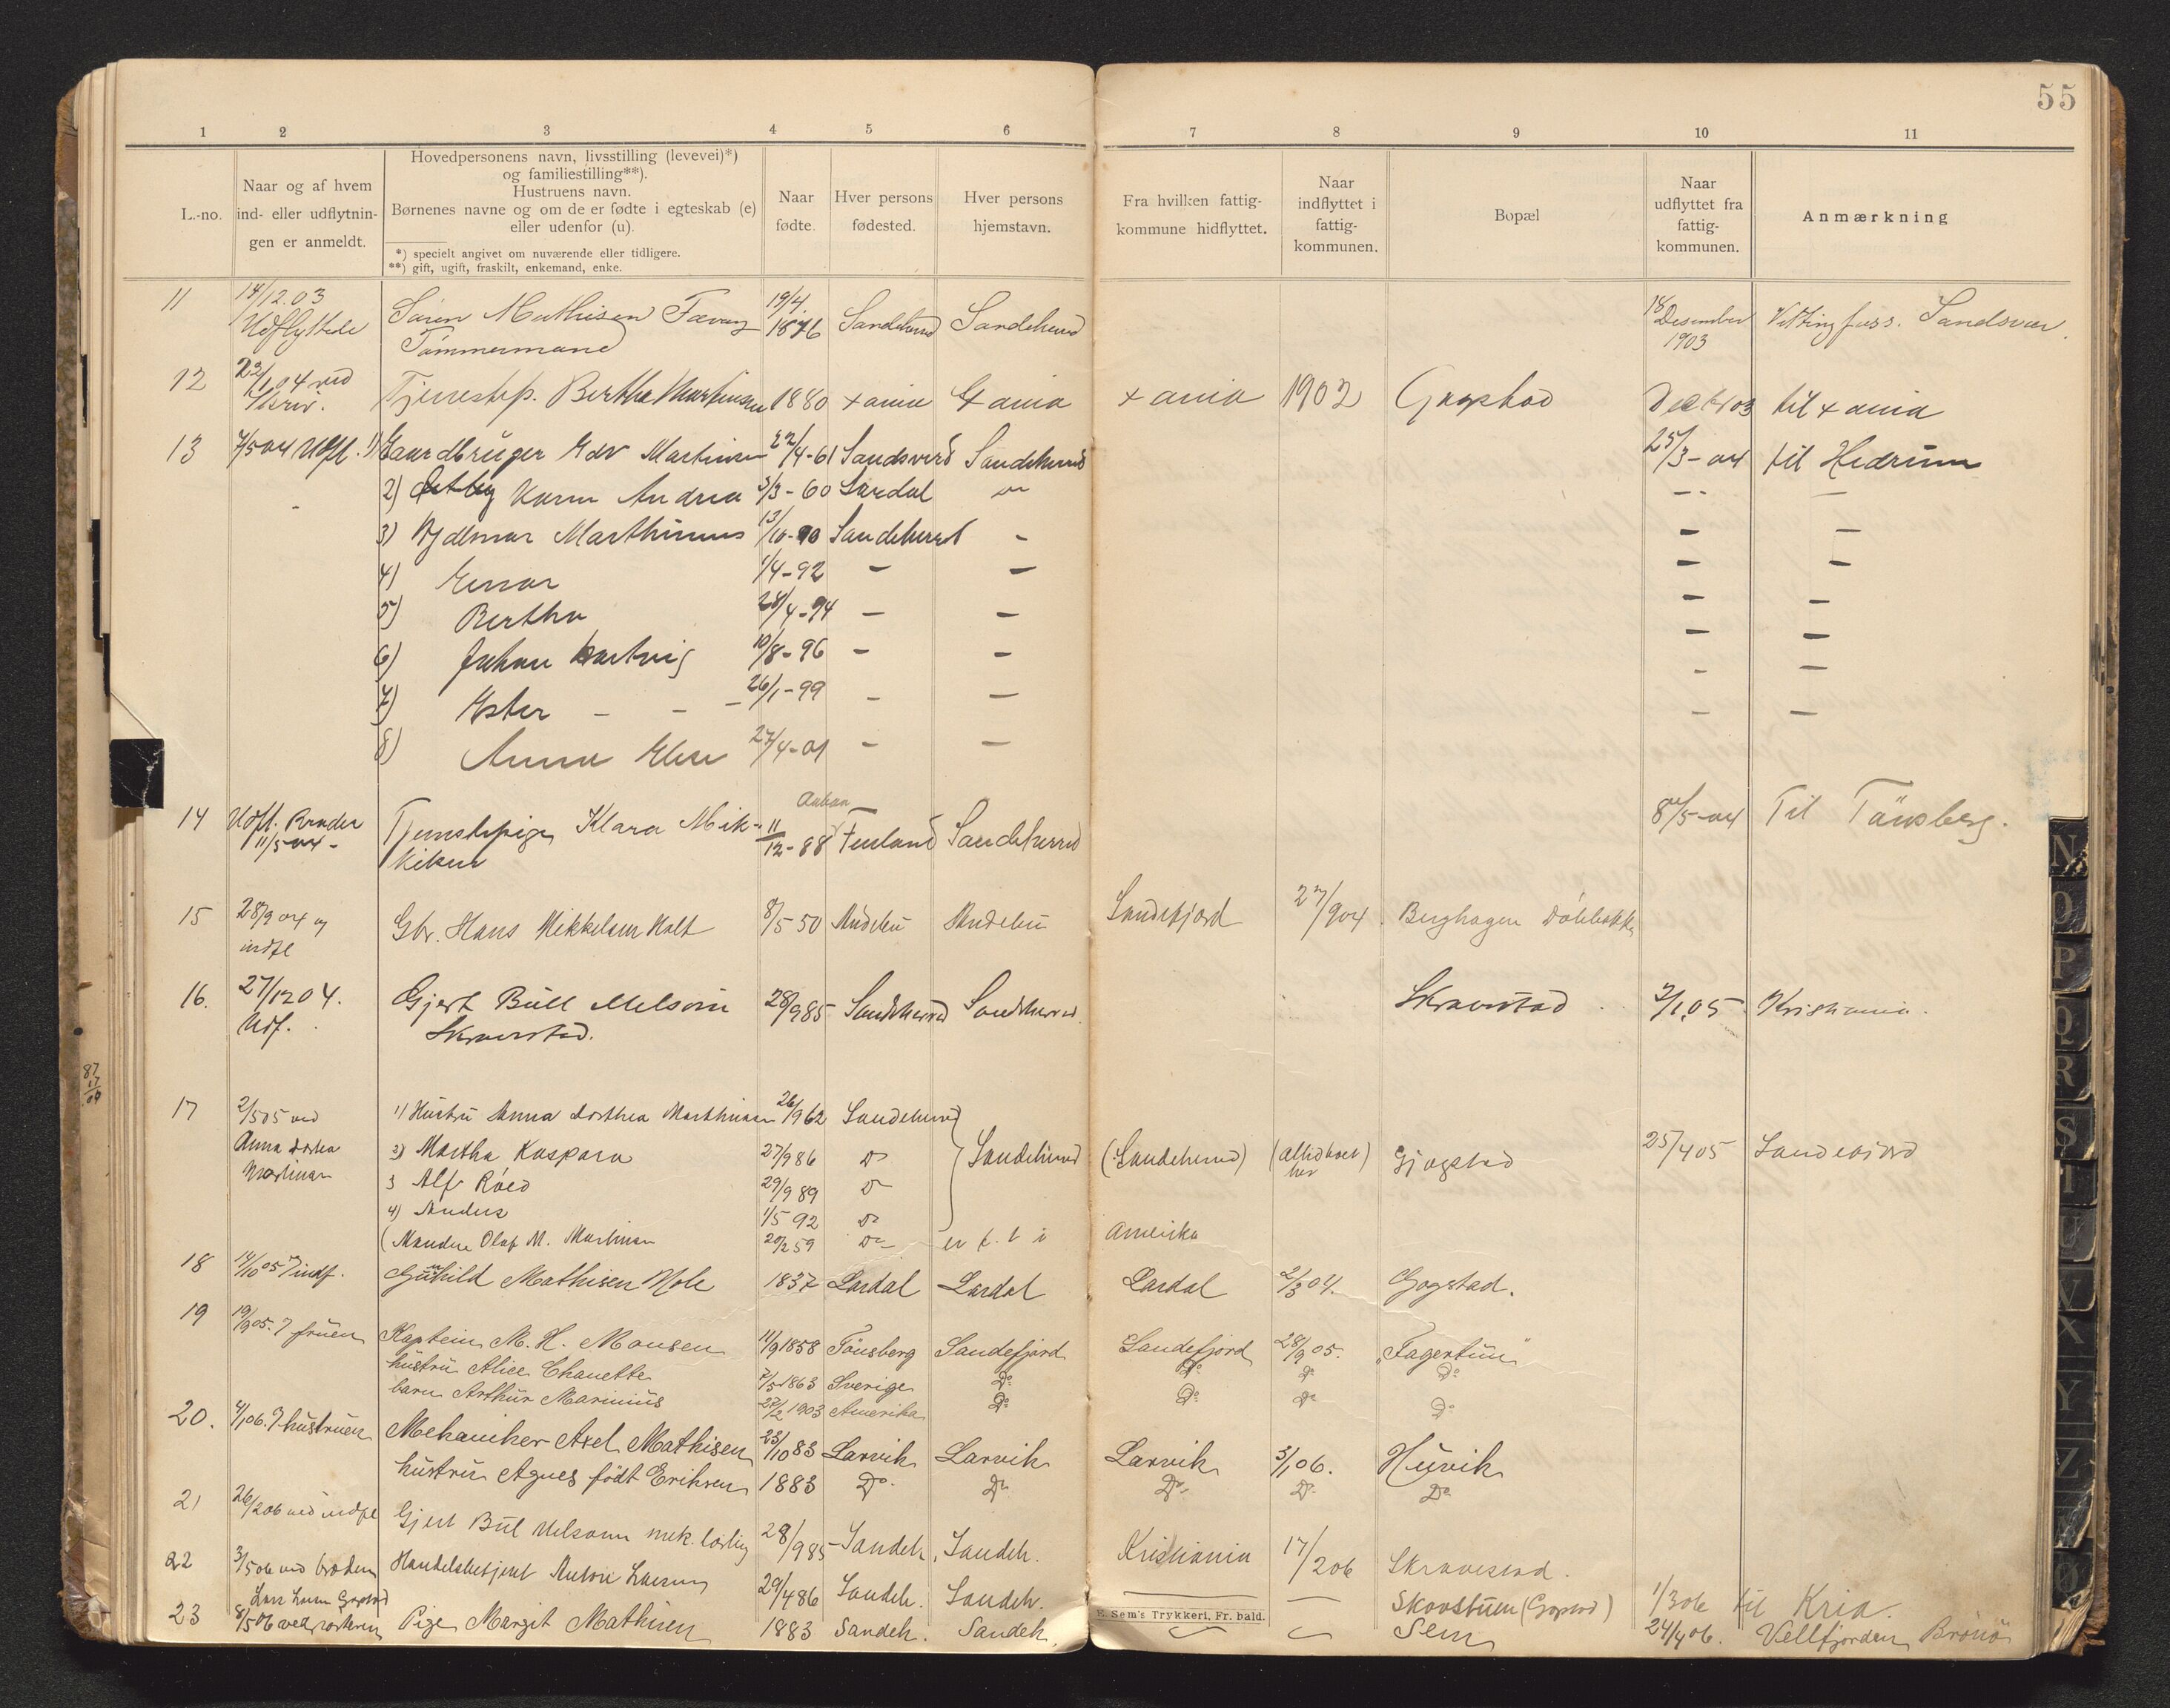 55
1 2 3 4 5 6 7 8 9 10 11
L.-no.
Naar og af hvem
ind- eller udflytnin-
gen er anmeldt.
Hovedpersonens navn, livsstilling (levevei)*)
og familiestilling**).
Hustruens navn.
Børnenes navne og om de er fødte i egteskab (e)
eller udenfor (u).
*) specielt angivet om nuværende eller tidligere.
**) gift, ugift, fraskilt, enkemand, enke.
Naar
fødte.
Hver persons
fødested.
Hver persons
hjemstavn.
Fra hvilken fattig-
kommune hidflyttet.
Naar
indflyttet i
fattig-
kommunen.
Bopæl
Naar
udflyttet fra
fattig-
kommunen.
Anmærkning
11 14/12.03 Sören Mathisen 19/4 18 Desember
Udflyttede Tömmermand 1876 Sandeherred Sandeherred 1903 Sandsvær
12 22/1 04 ved Tjenestep. Bertha Martinsen 1880 xania xania xania 1902 Gogstad Dec 03 til xania
13 7/5 04 Udfl. 1) Gaardbruger Edv Martinsen 22/4-61 Sandsverd Sandeherred 25/3-04 til Hedrum
2) Karen Andrea 3/3-60 Lardal
3) Hjalmar Marthinius 13/10-90 Sandeherred - - -
4) Einar 1/4-92 - - - -
5) Bertha 28/4-94 - - - -
6) Johan Hartvig 10/8-96 - - - -
7) Ester - - - 26/1-99 - - - -
8) Anna Elise 27/4-01 - - - -
14 Udfl. 11/5-04 Tjenestepige Klara Mik- 11/12-88 Finland Sandeherred 8/5-04 Til Tönsberg.
15 28/9 04 indfl Gbr. Hans Mikkelsen Holt 8/5 50 Andebu Andebu Sandefjord 27/9 04 Berghagen
16. 27/12 04. Gjert Bull Melsom 28/9 85 Sandeherred Sandeherred Skravestad 3/1 05 Kristiania.
Udf. Skravestad.
87
17
04
17 2/5 05 ved 1) Hustru Anna Dorthea Marthinsen 26/9 62 Sandeherred
Anna Dorthea 2) Martha Kaspara 27/9 86 Do Sandeherred (Sandeherred) (altid boet her) Gjogstad 25/4 05 Sandefjord
Martinsen 3 Alf Röed 29/9 89 Do
4) Anders 1/5 92 Do
(Manden Olaf M. Martinsen 20/2 59 Do er f. t i Amerika
18 14/10 05 indf. Gunhild Mathisen Hole 1837 Lardal Lardal Lardal 2/3 04. Gogstad.
19 19/9 05. fruen Kaptein M. H. Monsen 11/9 1858 Tönsberg Sandefjord Sandefjord 28/9 05. "Fagertun"
hustru Alice Chanette 7/5 1863 Sverige Do Do Do Do
barn Arthur Marinius 27/2 1903 Amerika Do Do Do Do
20. 4/1 06. hustruen Mekaniker Axel Mathisen 23/10 83 Larvik Larvik Larvik 3/1 06. Huvik
hustru Agnes födt Eriksen 1883 Do. Do Do Do Do
21 26/2 06 ved indfl Gjert Bul Melsom mek. lærling 28/9 85 Sandeh. Sandeh. Kristiania 17/2 06 Skravestad.
22 3/5 06 ved broderen Handelsbetjent Anton Larsen 29/4 86 Sandeh. Sandeh. Skovstuen (Gogstad) 1/3 06 til Kria.
Lars Larsen Gogstad
23 8/5 06 ved Pige Margit Mathisen 1883 Sandeh. Sandeh. Sem 24/4 06. Vellfjorden Brönö
E. Sem's Trykkeri, Fr. hald.
N
O
P
Q
R
S
T
U
V
X
Y
Z
Æ
Ø